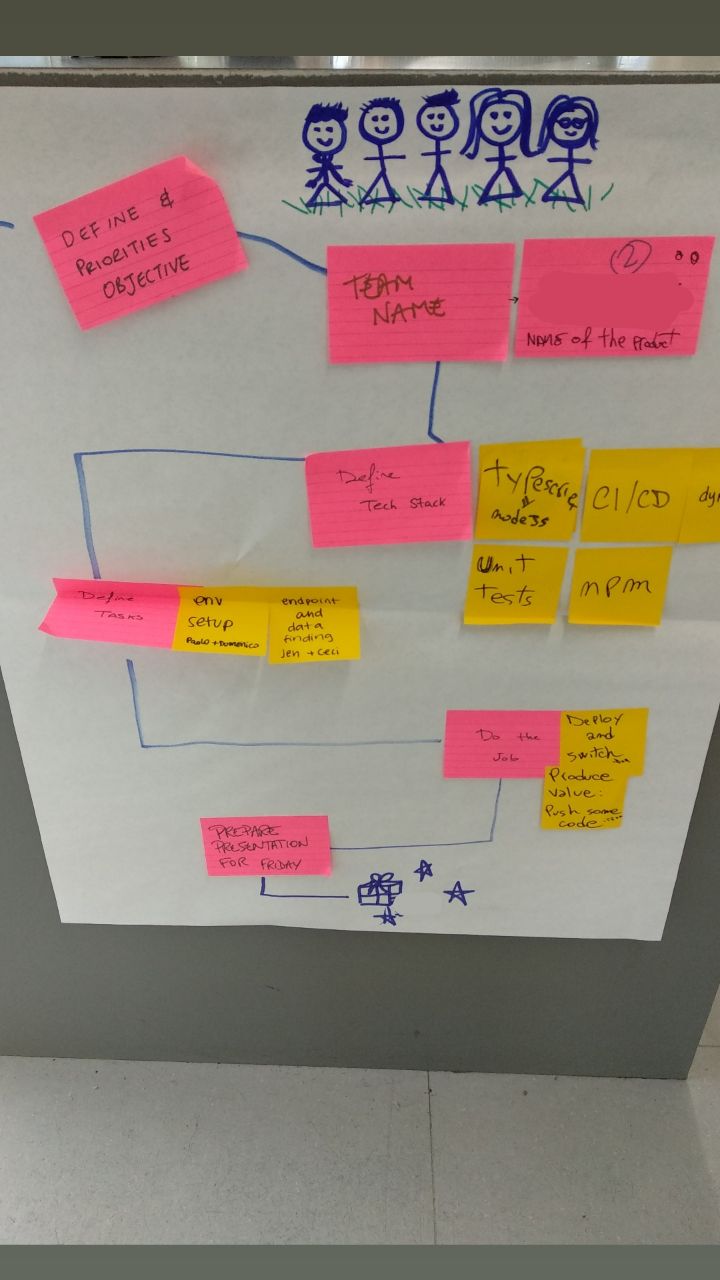 DEFINE &
PRIORITIES
OBJECTIVE
TEAM
NAME
2
NAME of the Product
Define
Tech Stack
typescrip
nodeJS
CI/CD
Unit
tests
npm
Define
TASKS
env
setup
Paolo + Domenico
endpoint
and
data
finding
Jen + Ceci
Do the
Job
Deploy
and
switch....
Produce
value:
Push some
code....
PREPARE
PRESENTATION
FOR FRIDAY